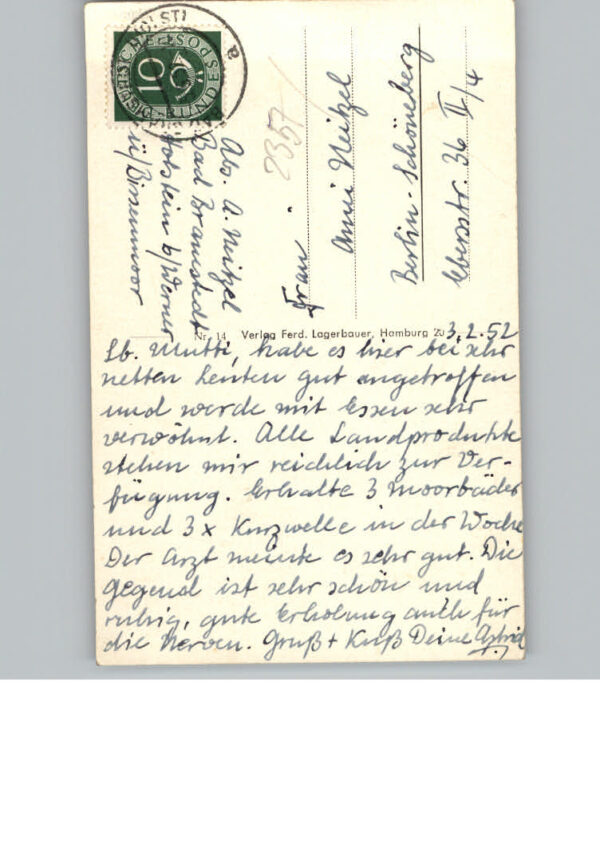 DEUTSCHE BUNDESPOST
10
a
Abs. A. Neitzel
Bad Bramstedt
Holstein b/Werner
ü/Bissenmoor
2357
Frau
Anni Neitzel
Berlin-Schöneberg
Ebersstr. 36 II/4
Nr. 14 Verlag Ferd. Lagerbauer, Hamburg 20
3.2.52
Lb. Mutti, habe es hier bei sehr
netten Leuten gut angetroffen
und werde mit Essen sehr
verwöhnt. Alle Landprodukte
stehen mir reichlich zur Ver-
fügung. Erhalte 3 Moorbäder
und 3 x Kurzwelle in der Woche
Der Arzt meinte es sehr gut. Die
Gegend ist sehr schön und
ruhig, gute Erholung auch für
die Nerven. Gruß + Kuß Deine Astrid